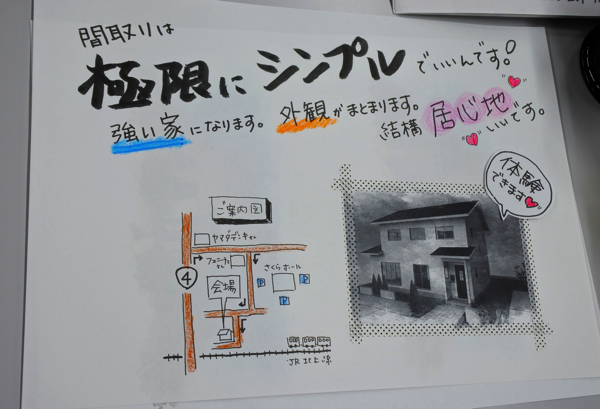 間取りは
極限に シンプル でいいんです!
強い家になります。 外観がまとまります。
結構 居心地 いいです。
体験
できます
ご案内図
ヤマダデンキさん
さくらホール
4
会場
P
P
P
JR北上線